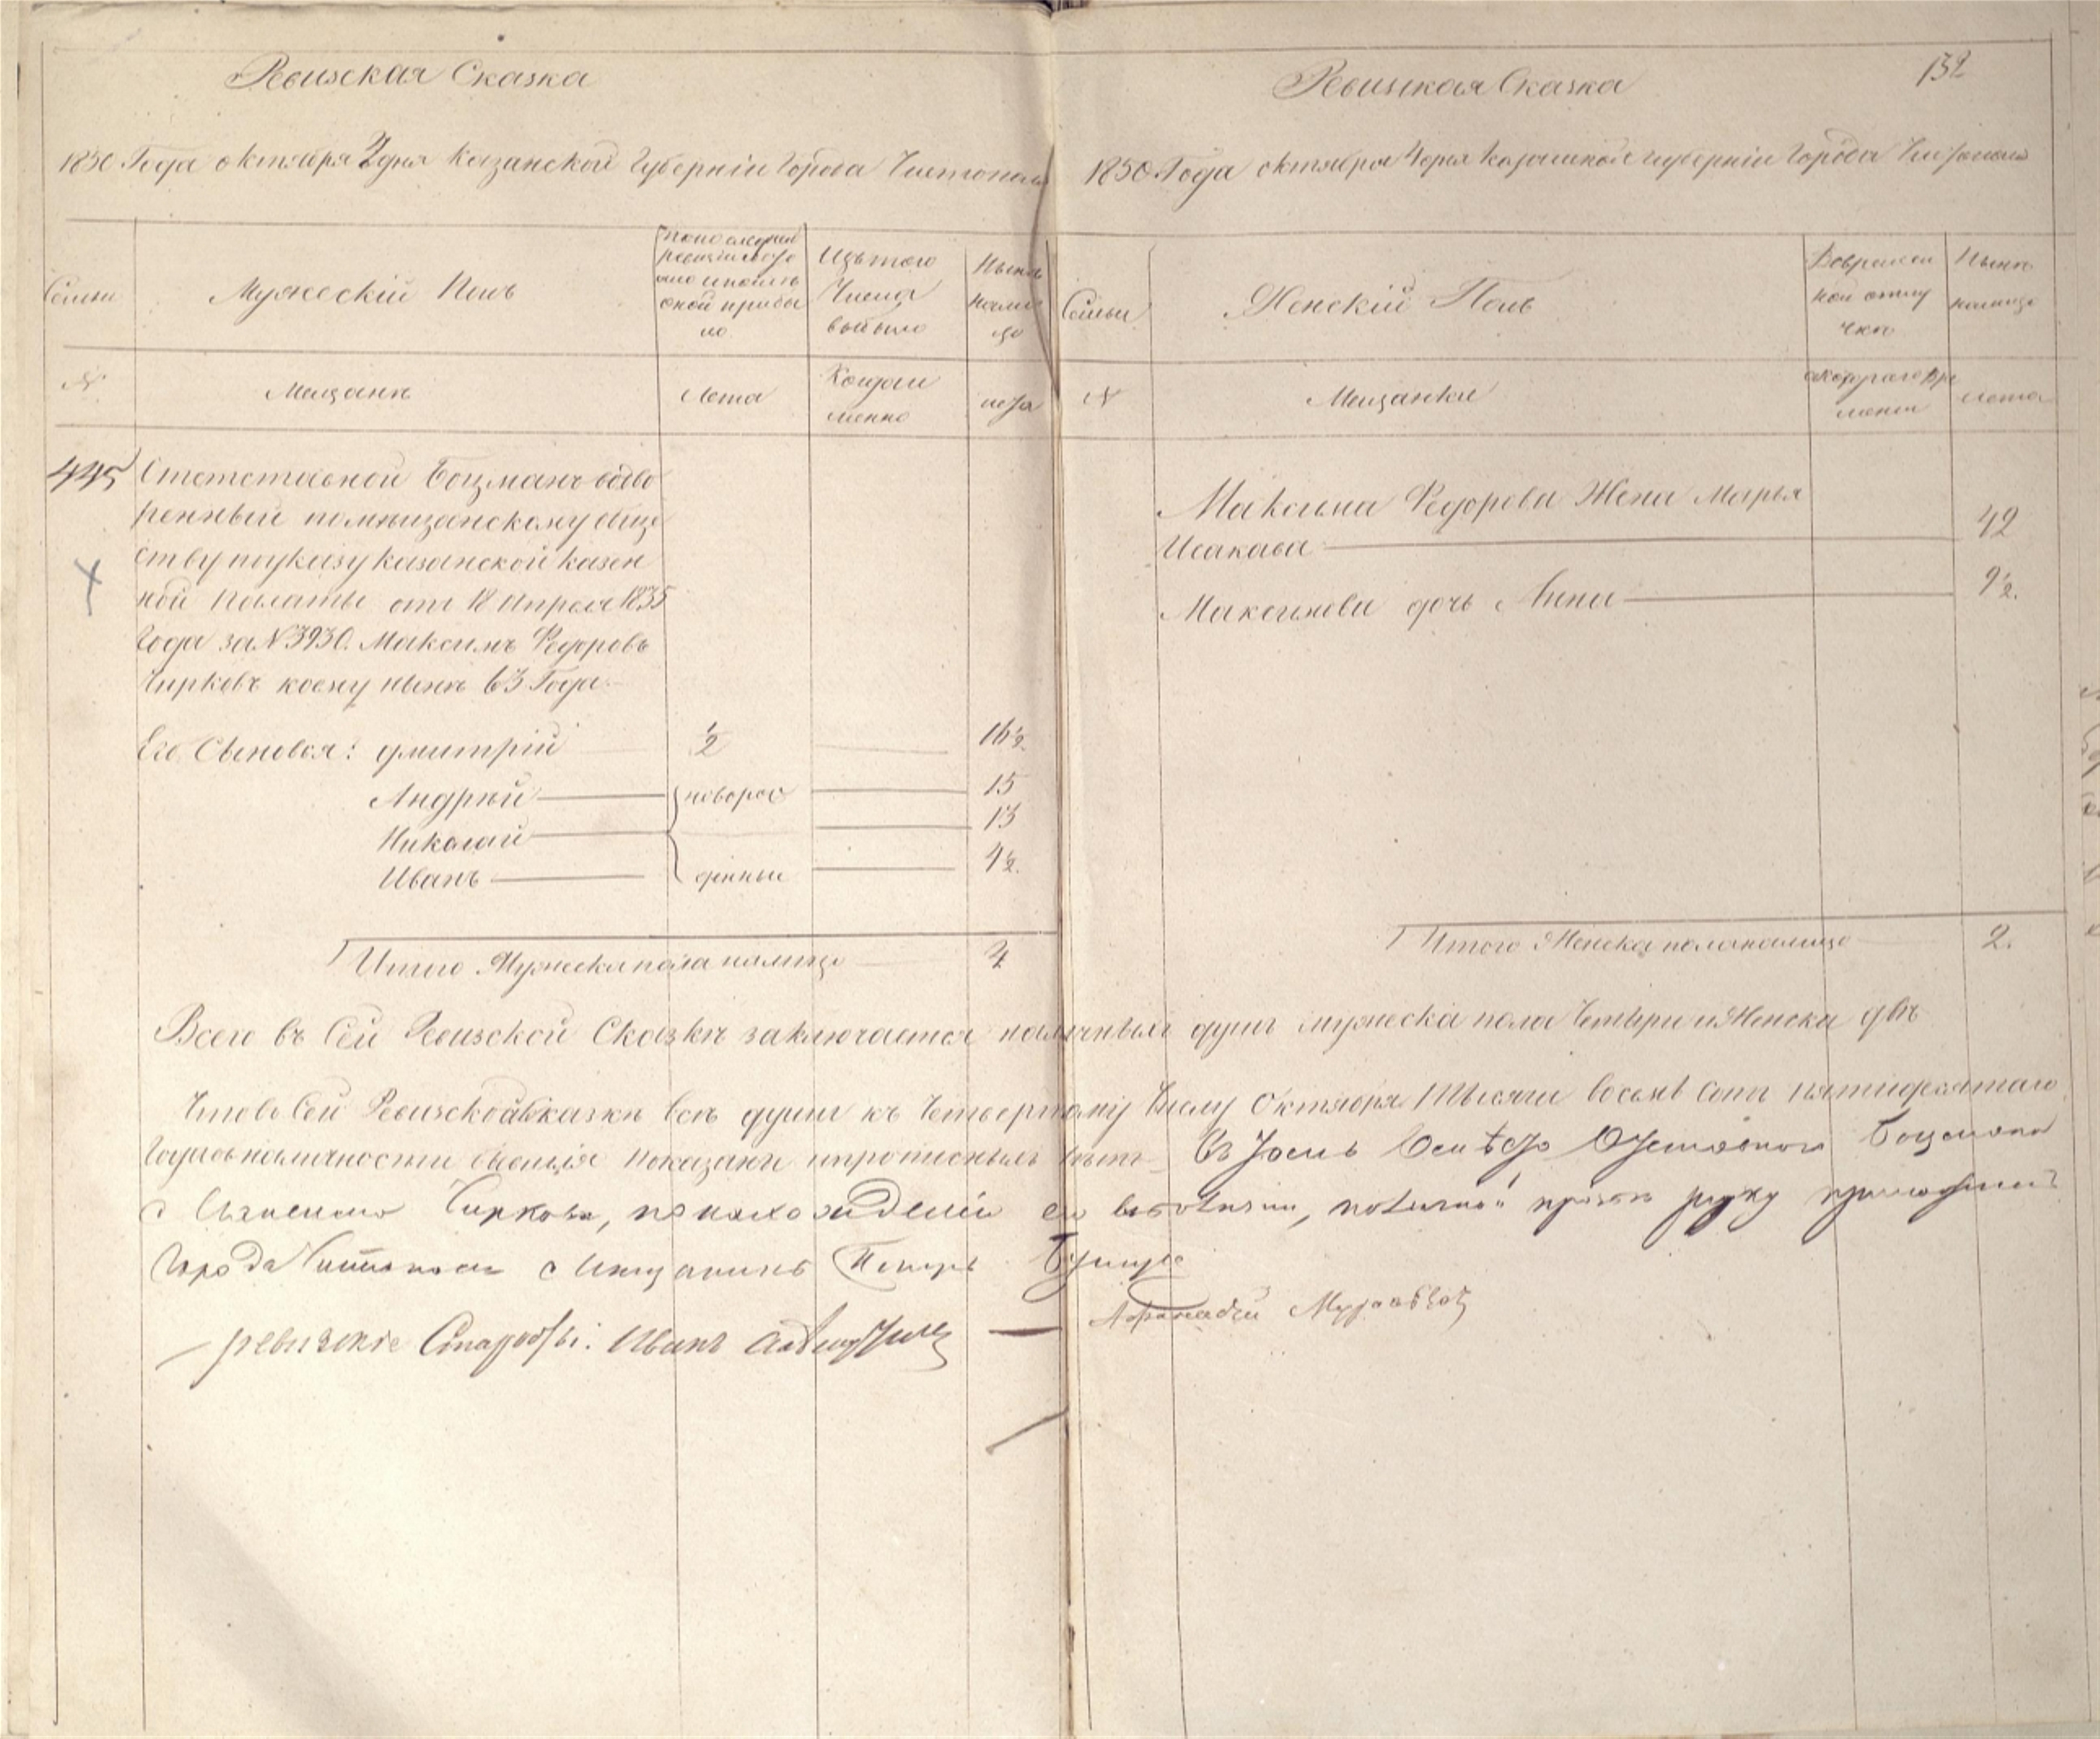 Ревизская Сказка
1850 Года октября 4 дня Казанской Губернiи Города Чистополя
Семьи
Мужескiй Полъ
По последней
ревизiи состо
яло и после
оной прибы
ло
Изъ того
Числа
выбыло
Нынѣ
на ли
цо
№
Мещанѣ
Лета
Когда и
менно
лета
445
Отстставной Боцманъ водво
ренный по мѣщанскому обще
ству по указу Казанской казен
ной палаты от 18 Апреля 1835
Года за №3930. Максимъ Федоровъ
Чирковъ коему нынѣ 63 Года
Его Сыновья: Дмитрiй ½ 16½
Андрѣй новорож 15
Николай 13
Иванъ денные 4½
Итого Мужеска пола на лицо 4
132
Ревизская Сказка
1850 Года октября 4 дня Казанской губернiи Города Чистополя
Семьи
Женскiй Полъ
Во времен
ной отлу
чкѣ
Нынѣ
на лицо
№
Мещанки
с котораго вре
мени
лета
Максима Федорова Жена Марья
Исакава 42
Максимова дочь Анна 9½.
Итого Женска пола на лицо 2.
Всего въ Сей Ревизской Сказкѣ заключается наличныхъ душъ мужеска пола Четыри и Женска двѣ
Что въ Сей Ревизской Сказкѣ всѣ души къ Четвертому Числу Октября Тысячи восемь сотъ пятидесятаго
Года въ наличности бывшiя показаны и прописныхъ нѣтъ Въ томъ Отставнога Боцмана
Максима Чиркова, по нахождению его руку приложилъ
Города Чистополя Мещанинъ Петръ
ревизские Старосты: Иванъ